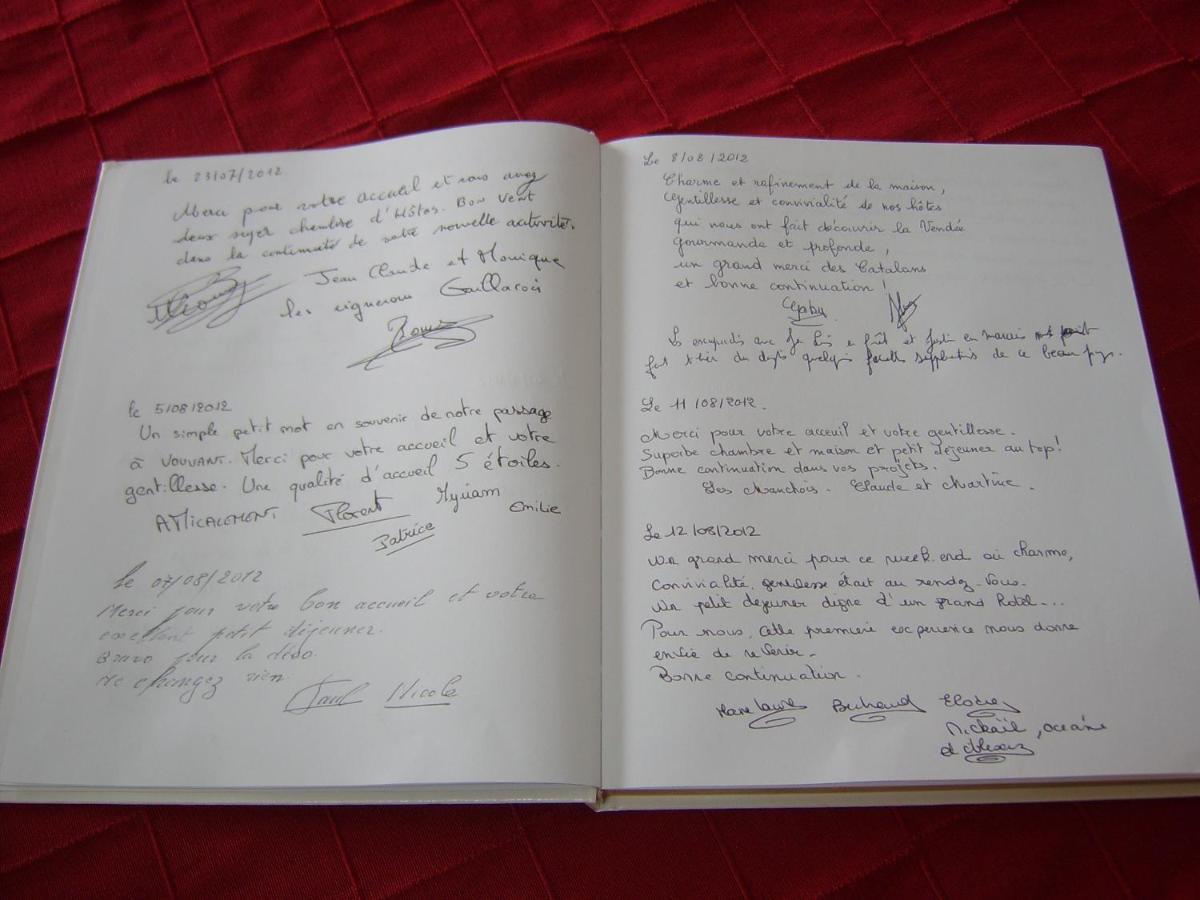 le 23/07/2012
Merci pour votre accueil et vous avez
deux super chambre d'Hôtes. Bon vent
dans la continuité de votre nouvelle activité.
Jean Claude et Monique
les vignerons
le 5/08/2012
Un simple petit mot en souvenir de notre passage
à VOUVANT. Merci pour votre accueil et votre
gentillesse. Une qualité d'accueil 5 étoiles.
AMICALEMENT Florent Myriam Emilie
Patrice
Le 07/08/2012
Merci pour votre bon accueil et votre
excellent petit déjeuner.
Bravo pour la déco.
Ne changez rien.
Paul Nicole
Le 8/08/2012
Charme et rafinement de la maison,
Gentillesse et convivialité de nos hôtes
qui nous ont fait découvrir la Vendée
gourmande et profonde,
un grand merci des Catalans
et bonne continuation !
Gaby
de ce beau pays.
Le 11/08/2012.
Merci pour votre acceuil et votre gentillesse.
Superbe chambre et maison et petit dejeuner au top!
Bonne continuation dans vos projets.
Les Manchois. Claude et Martine.
Le 12/08/2012
Un grand merci pour ce week.end où charme,
Convivialité, gentillesse était au rendez-vous.
Un petit dejeuner digne d'un grand hotel....
Pour nous, cette premiere experience nous donne
envie de revenir.
Bonne continuation.
Marie Laure Bertrand Elodie
Mickaïl, oceane
et